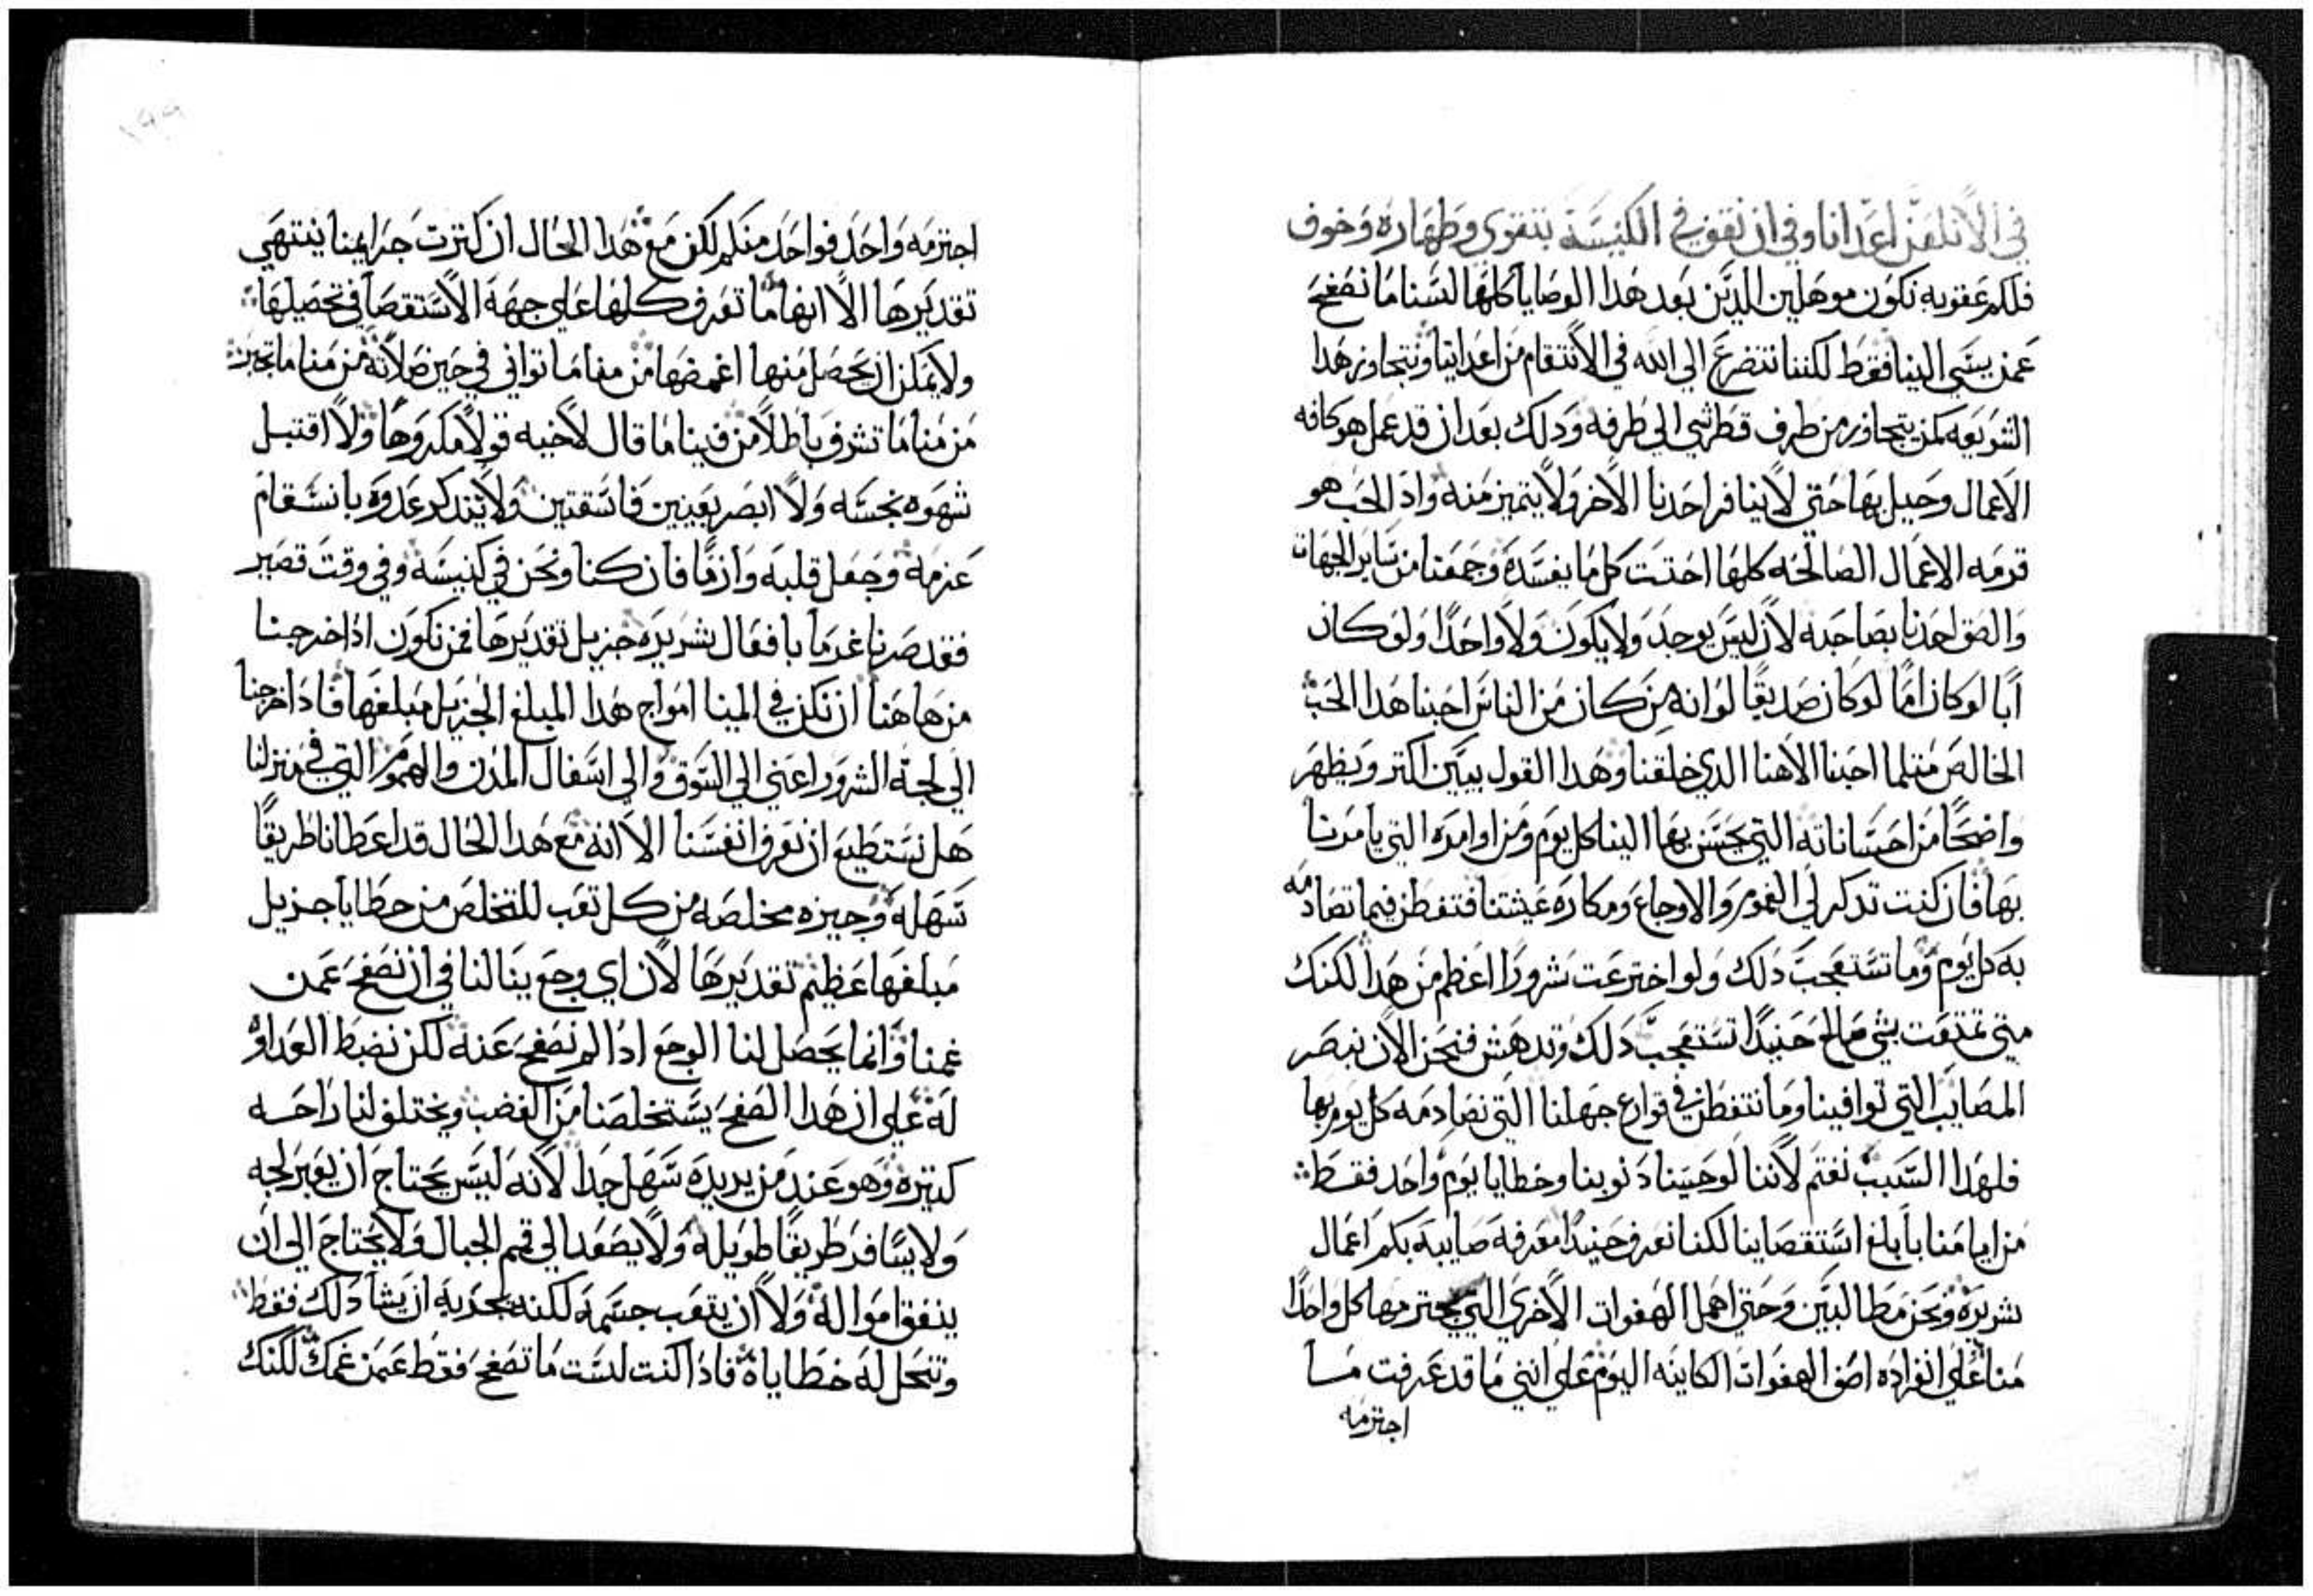 في الا نلعن اعدانا وفي ان نقف في الكنيسة بتقوي وطهارة وخوف
فلكم عقوبه نكون موهلين الدين بعد هدا الوصايا كلها لسنا ما نصفح
عمن يسي الينا فقط لكننا نتضرع الي الله في الانتقام من اعداينا ونتجاوز هدا
الشريعه كمن يتجاوز من طرف قطر شي الي طرفه ودلك بعد ان قد عمل هو كافه
الاعمال وحيل بها حتي لا ينافر احدنا الاخر ولا يتميز منه واد الحب هو
قرمه الاعمال الصالحه كلها احتت كل ما يفسده وجمعنا من ساير الجهات
والصق احدنا بصاحبه لان ليس يوجد ولا يكون ولا واحدا ولو كان
ابا لو كان اما لو كان صديقا لو انه من كان من الناس احبنا هدا الحب
الخالص متلما احبنا الاهنا الدي خلقنا وهدا القول يبين اكتر ويظهر
واضحا من احساناته التي يحسن بها الينا كل يوم ومن اوامره التي يامرنا
بها فان كنت تدكر لي الغموم والاوجاع ومكاره عيشتنا فتفطن فيما تصادمه
به كل يوم وما تستعجب دلك ولو اخترعت شرورا اعظم من هدا لكنك
متي تمتعت بشي صالح حنيدا تستعجب دلك وتدهش فنحن الان نبصر
المصايب التي توافينا وما نتفطن في قوارع جهلنا التي نصادمه كل يوم بها
فلهدا السبب نغتم لاننا لو حسبنا دنوبنا وخطايا يوم واحد فقط
من ايامنا بابلغ استقصاينا لكنا نعرف حنيدا معرفه صايبه بكم اعمال
شريره ونحن مطالبين وحتي اهمل الهفوات الاخري التي يجترمها كل واحدا
منا علي انفراده اصف الهفوات الكاينه اليوم علي انني ما قد عرفت مسا
اجترمه
اجترمه واحد فواحد منكم لكن مع هدا الحال ان كترت جرايمنا ينتهي
تقديرها الا انها ما تعرف كلها علي جهة الاستقصا في تحصيلها
ولا يمكن ان يحصل منها اغمضها من منا ما تواني في حين صلاته من منا ما تجبر
من منا ما تشرف باطلا من فينا ما قال لاخيه قولا مكروها ولا اقتبل
شهوه نجسه ولا ابصر بعينين فاسقتين ولا يتدكر عدوه بانسقام
عزمه وجعل قلبه وارما فان كنا ونحن في كنيسه وفي وقت قصير
فقد صرنا غرما بافعال شريره جزيل تقديرها فمن نكون ادا خرجنا
من هاهنا ان تكن في المينا امواج هدا المبلغ الجزيل مبلغها فادا خرجنا
الي لجة الشرور اعني الي السوق والي اسفال المدن والهموم التي في منزلنا
هل نستطيع ان نعرف انفسنا الا انه مع هدا الحال قد اعطانا طريقا
سهله وجيزه مخلصه من كل تعب للتخلص من خطايا جزيل
مبلغها عظيم تقديرها لان اي وجع ينالنا في ان نصفح عمن
غمنا وانما يحصل لنا الوجع ادا لم نصفح عنه لكن نضبط العداوه
له علي ان هدا الصفح يستخلصنا من الغضب ويختلق لنا راحه
كتيره وهو عند من يريده سهل جدا لانه ليس يحتاج ان يعبر لجه
ولا يسافر طريقا طويله ولا يصعد الي قمم الجبال ولا يحتاج الي ان
ينفق امواله ولا ان يتعب جسمه لكنه يجزيه ان يشا دلك فقط
وتنحل له خطاياه فادا كنت لست ما تصفح فقط عمن غمك لكنك